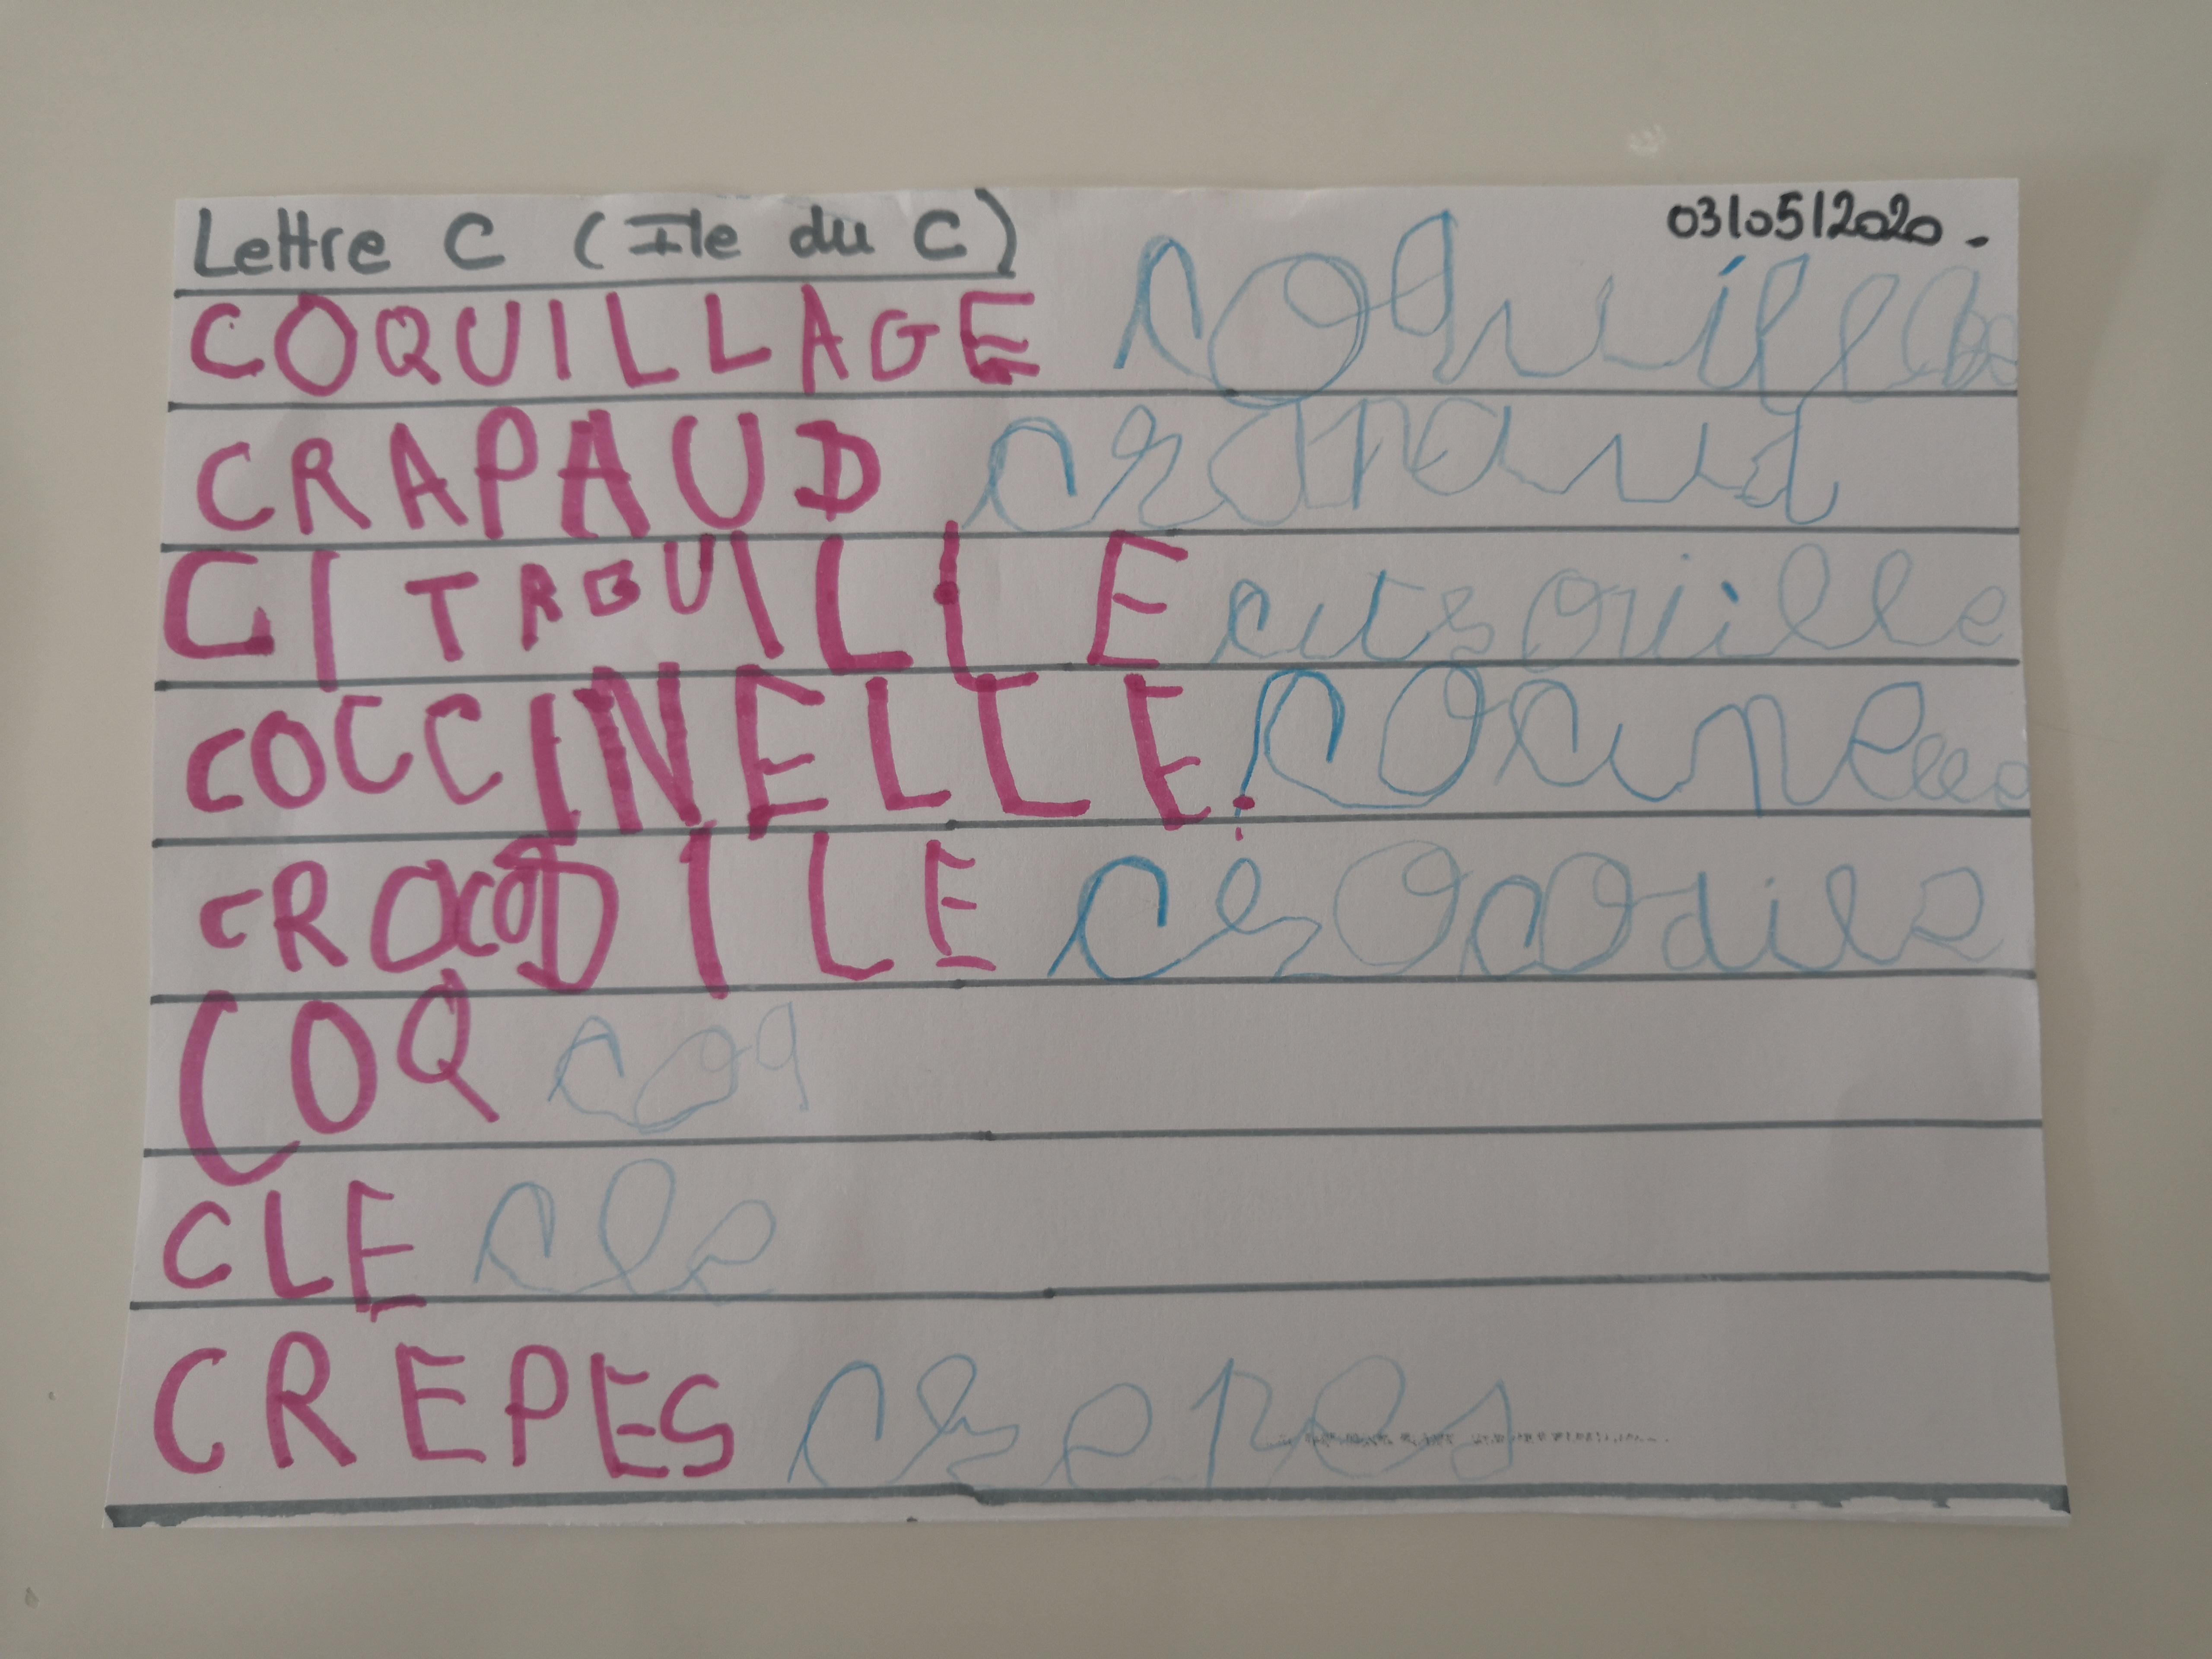 Lettre C (Ile du C) 03/05/2020.
COQUILLAGE
CRAPAUD crapaud
CITROUILLE citrouille
COCCINELLE.
CROCODILE crocodile
COQ coq
CLE cle
CREPES crepes